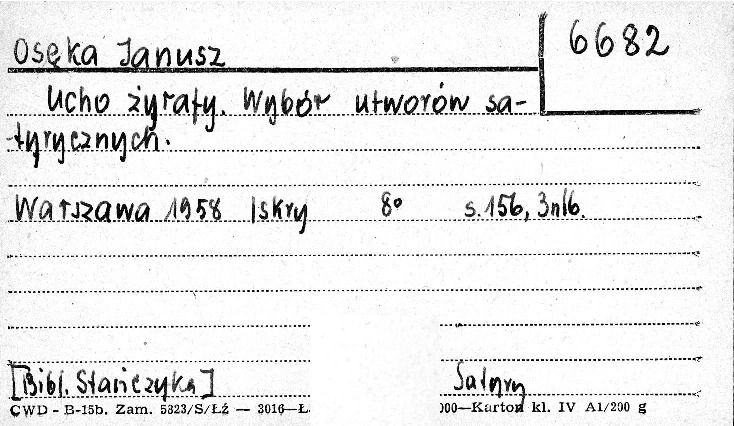 Osęka Janusz
6682
Ucho żyrafy. Wybór utworów sa-
tyrycznych.
Warszawa 1958 Iskry 8° s. 156, 3 nlb.
[Bibl. Stańczyka] Satyry
CWD - B-15b. Zam. 5323/S/Łź — 3016—Ł. 000—Karton kl. IV A1/200 g